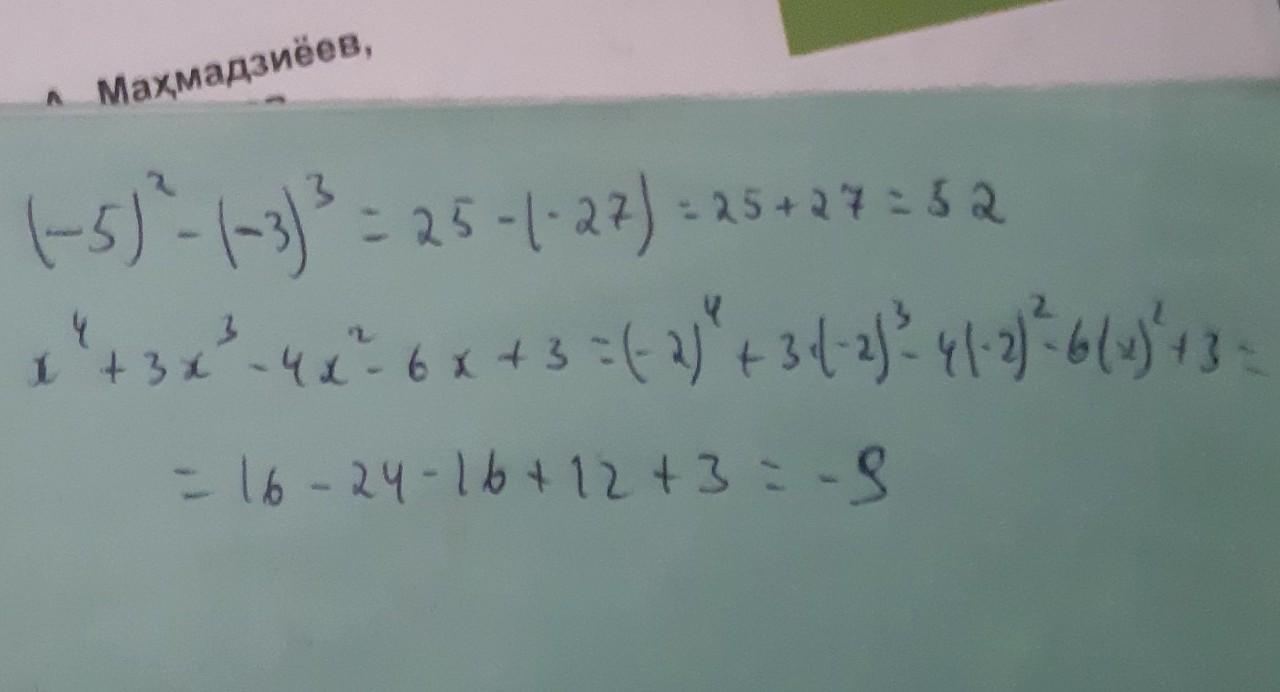 Маҳмадзиёев,
(-5)² - (-3)³ = 25 - (-27) = 25 + 27 = 52
x⁴ + 3x³ - 4x² - 6x + 3 = (-2)⁴ + 3·(-2)³ - 4(-2)² - 6(x)² + 3 =
= 16 - 24 - 16 + 12 + 3 = -9